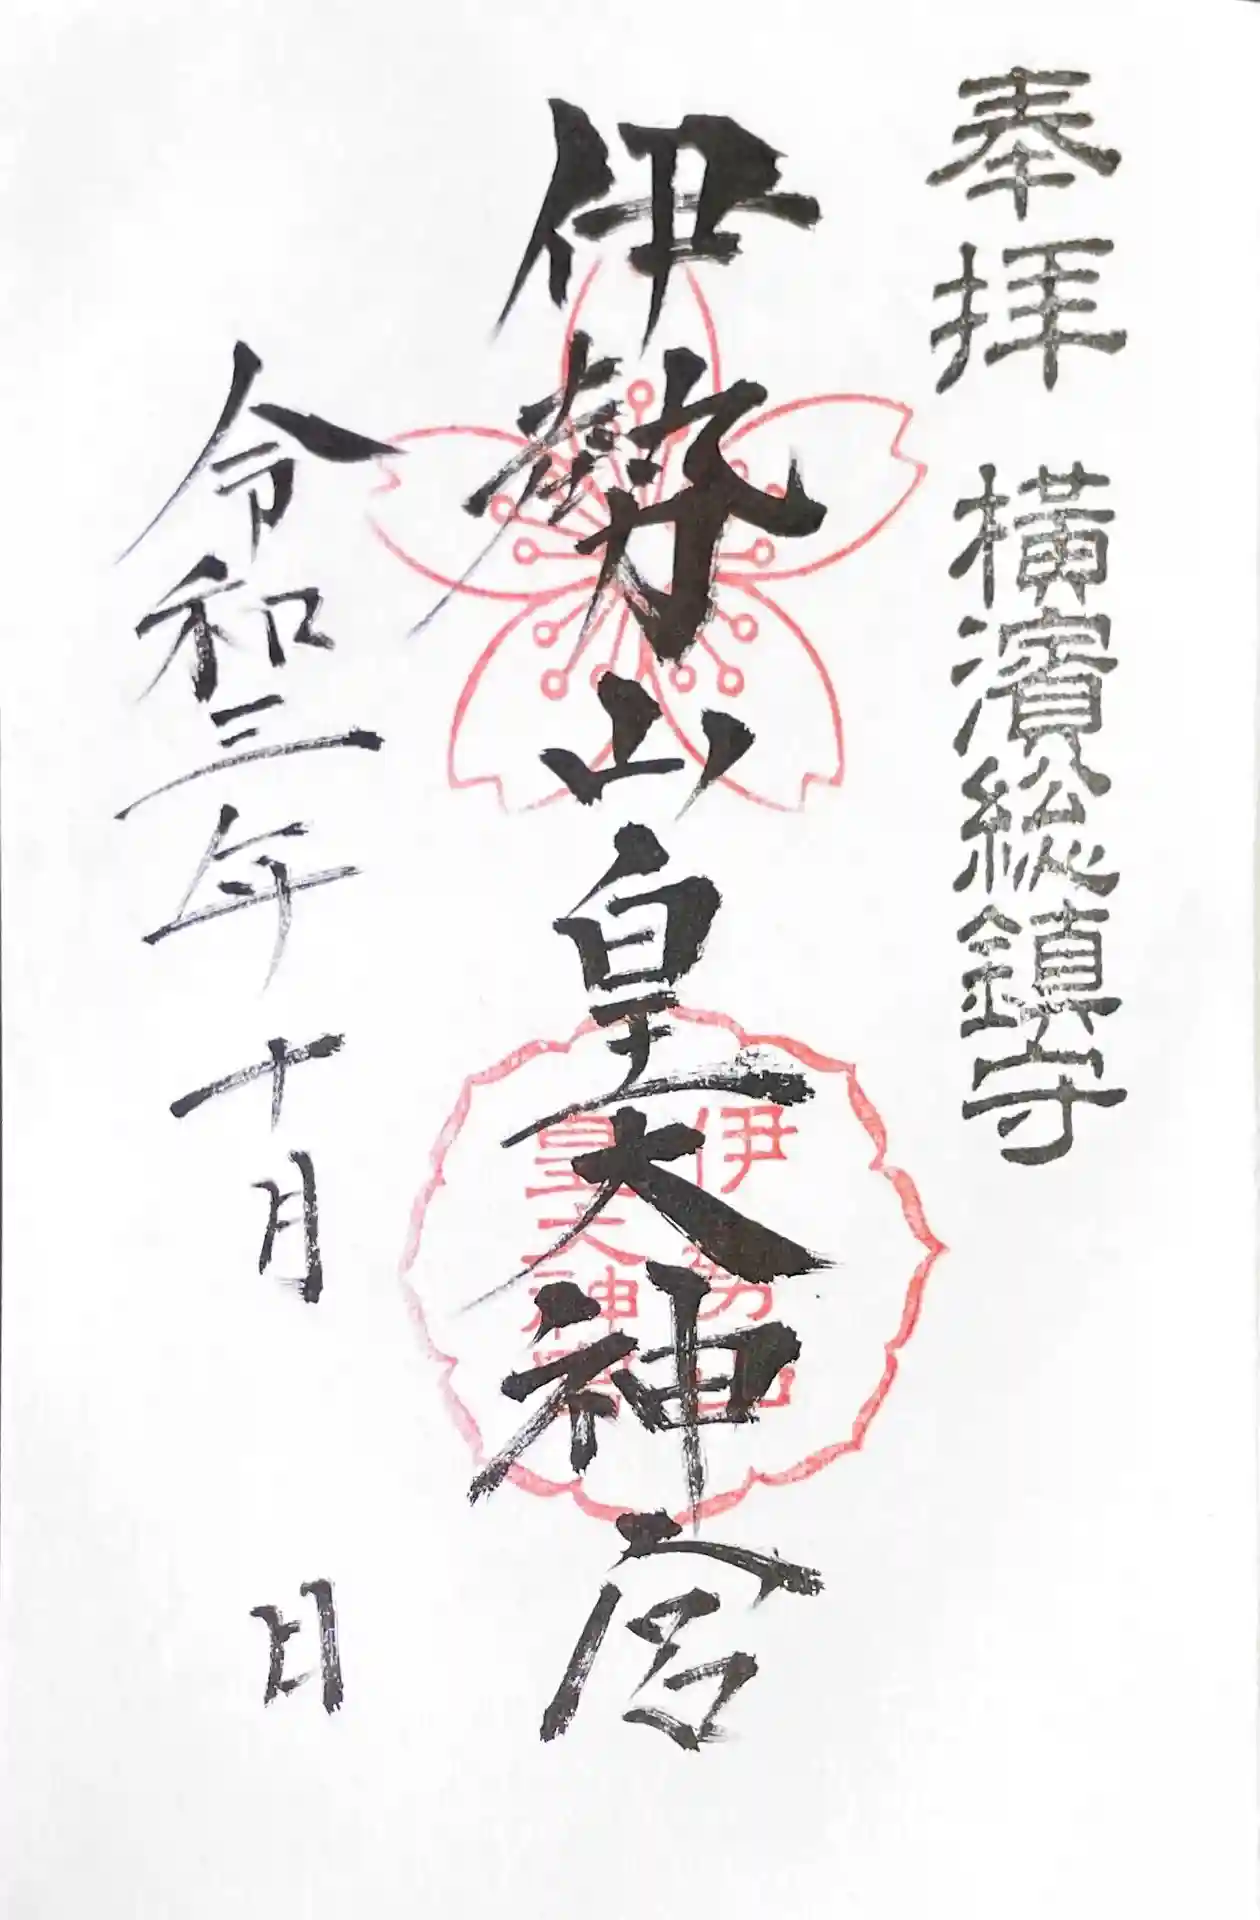 奉拝 橫濱総鎮守
伊勢山皇大神宮
伊勢山
皇大神宮
令和三年十月 日